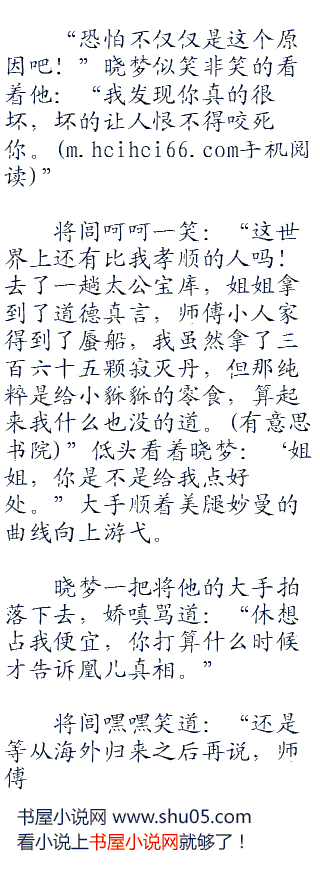 “恐怕不仅仅是这个原
因吧！”晓梦似笑非笑的看
着他：“我发现你真的很
坏，坏的让人恨不得咬死
你。(m.hcihci66.com手机阅
读)”
将闾呵呵一笑：“这世
界上还有比我孝顺的人吗！
去了一趟太公宝库，姐姐拿
到了道德真言，师傅小人家
得到了蜃船，我虽然拿了三
百六十五颗寂灭丹，但那纯
粹是给小貅貅的零食，算起
来我什么也没的道。(有意思
书院)”低头看着晓梦：‘姐
姐，你是不是给我点好
处。”大手顺着美腿妙曼的
曲线向上游弋。
晓梦一把将他的大手拍
落下去，娇嗔骂道：“休想
占我便宜，你打算什么时候
才告诉凰儿真相。”
将闾嘿嘿笑道：“还是
等从海外归来之后再说，师
傅
书屋小说网 www.shu05.com
看小说上书屋小说网就够了！